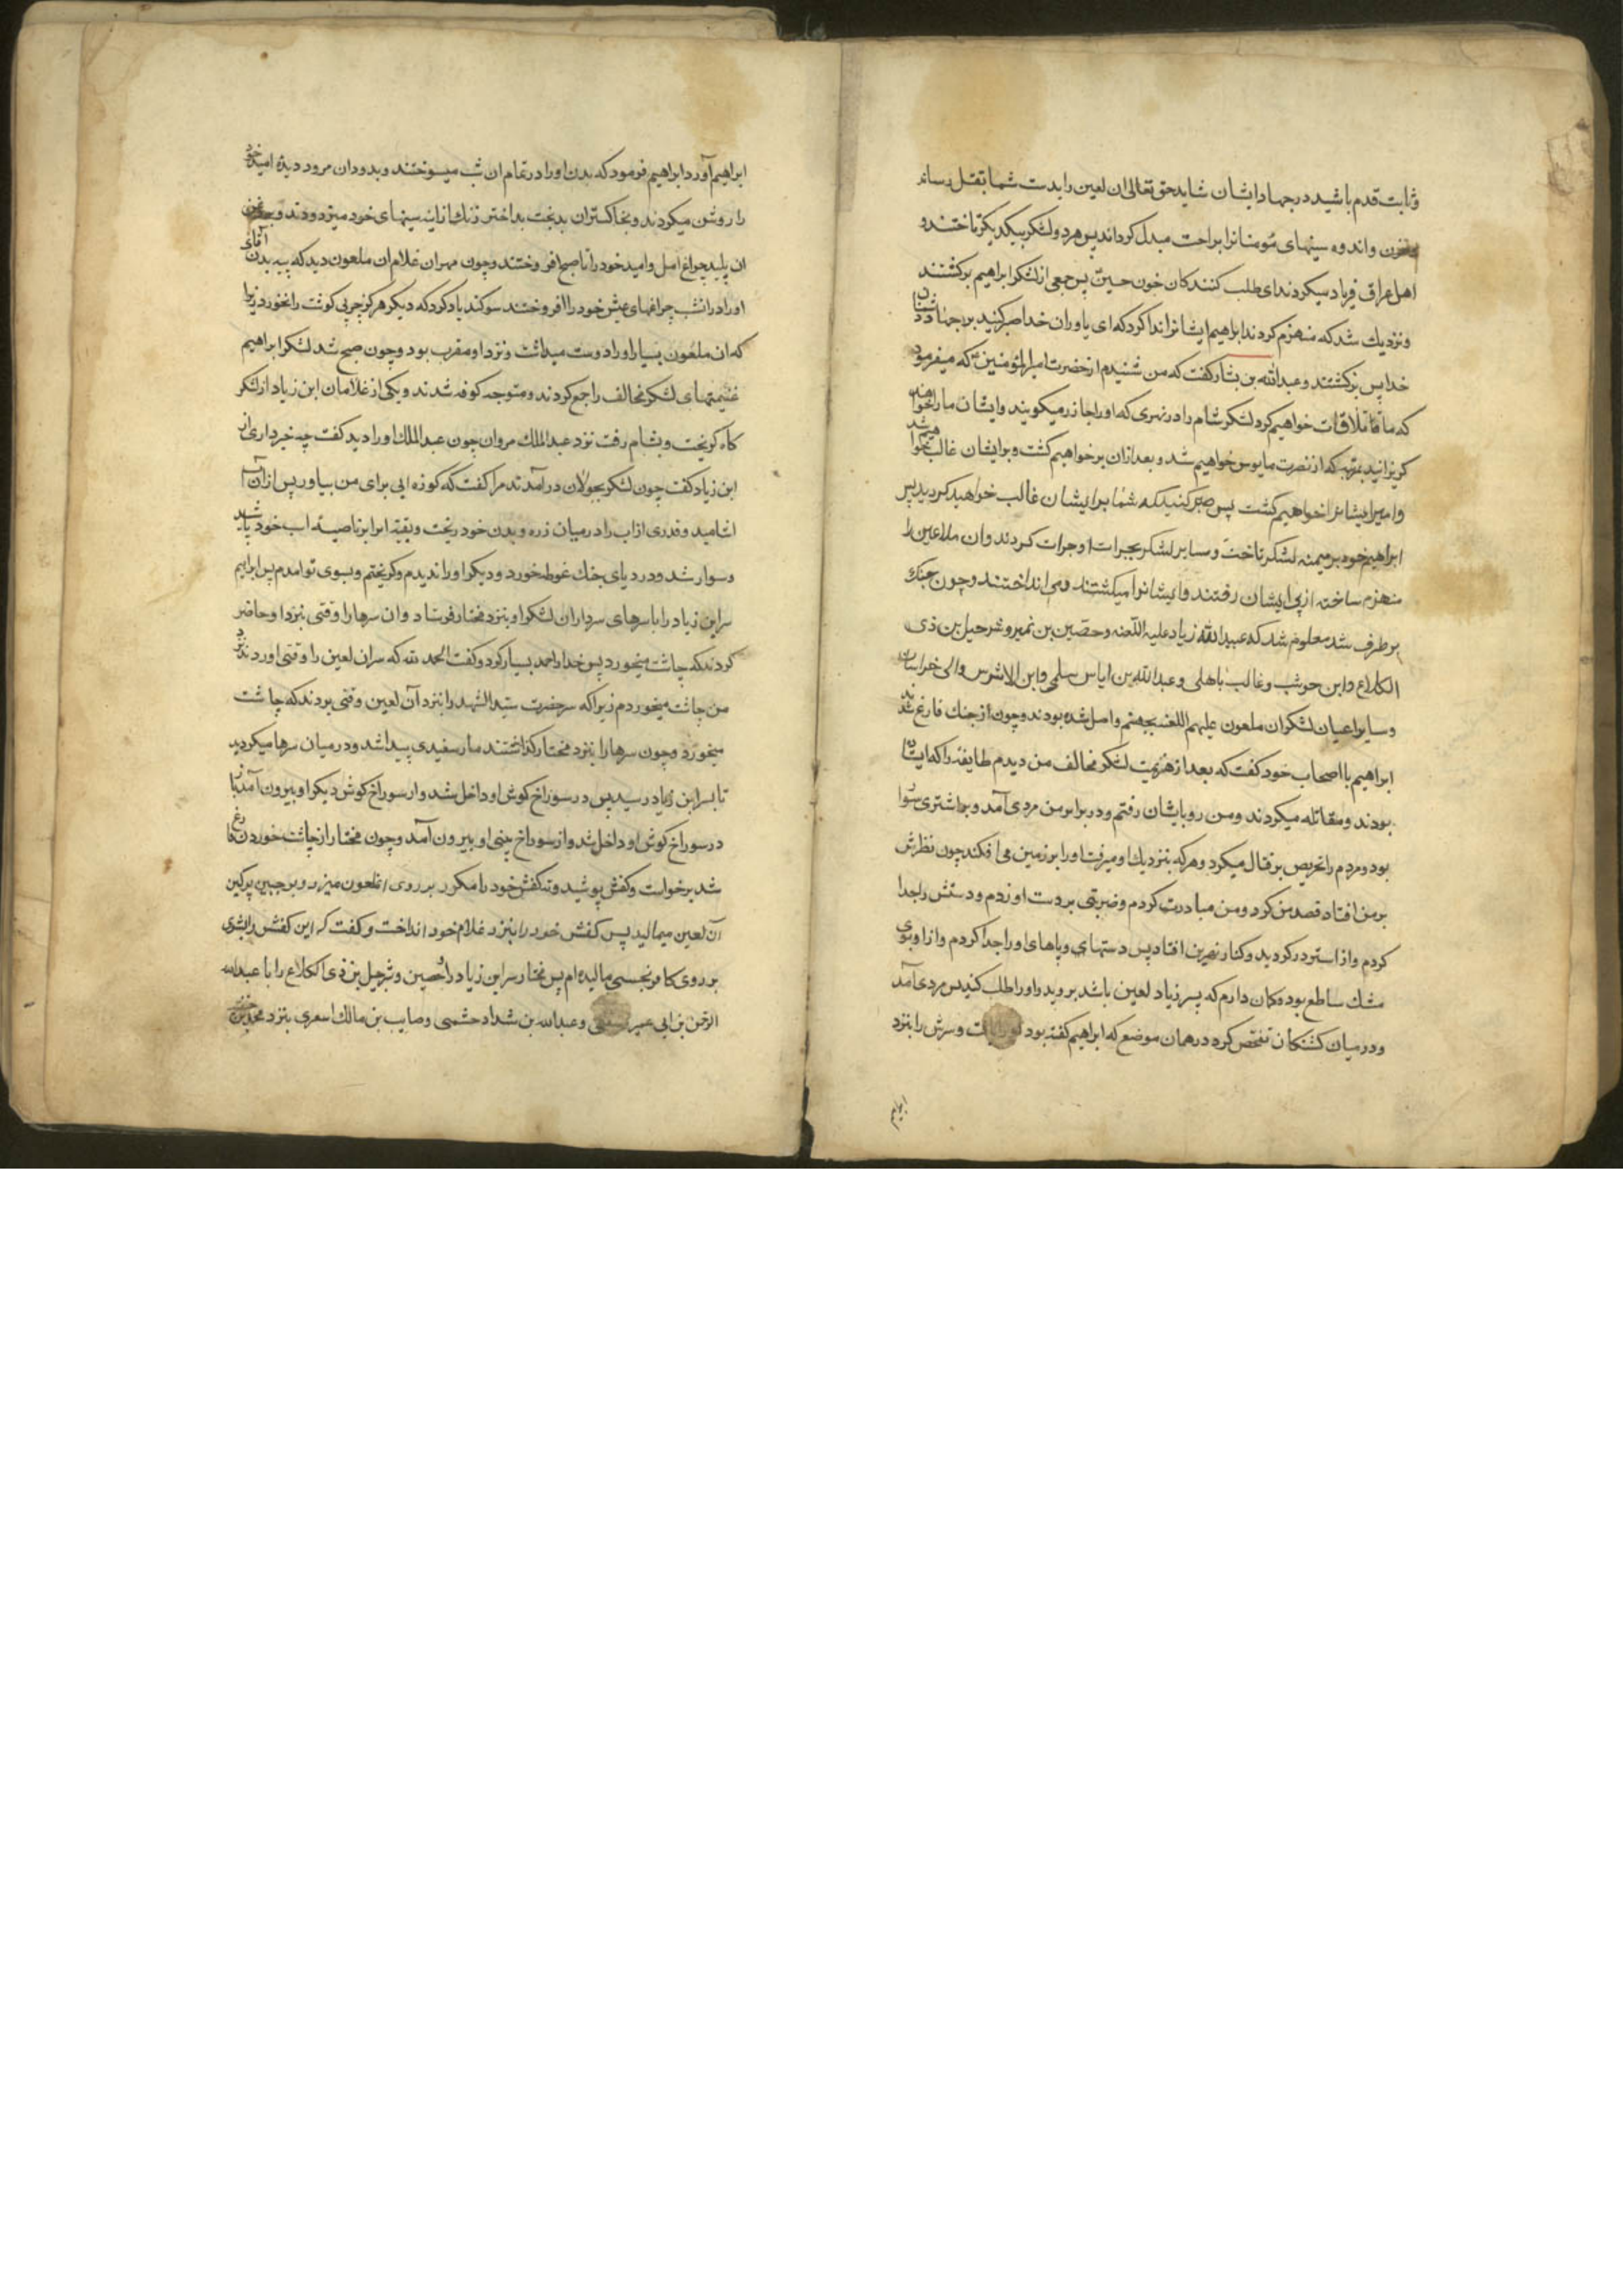 وثابت قدم باشید در جهاد ایشان شاید حق تعالی ان لعین را بدست شما بقتل رساند
واندوه سینهای مؤمنانرا براحت مبدل کرداند پس هر دو لشکر بیکدیکر تاختند و
اهل عراق فریاد میکردند ای طلب کنندکان خون حسین پس جمعی از لشکر ابراهیم برکشتند
ونزدیك شد که منهزم کردند ابراهیم ایشانرا ندا کرد که ای یاوران خدا صبر کنید بر جهاد دشمنان
خدا پس برکشتند وعبدالله بن بشار کفت که من شنیدم از حضرت امیرالمؤمنین که میفرمود
که ما ملاقات خواهیم کرد لشکر شام را در نهری که اورا خازر میکویند وایشان مارا خواهند
کریزانید بمرتبه که از نصرت مایوس خواهیم شد وبعد ازان بر خواهیم کشت وبر ایشان غالب خواهیم شد
وامیر ایشانرا خواهیم کشت پس صبر کنید که شما بر ایشان غالب خواهید کردید پس
ابراهیم خود بر میمنه لشکر تاخت وسایر لشکر بجرات او جرات کردند وان ملاعین را
منهزم ساخته از پی ایشان رفتند وایشانرا میکشتند ومی انداختند وچون جنك
بر طرف شد معلوم شد که عبیدالله زیاد علیه اللعنه وحصین بن نمیر وشرحیل بن ذی
الکلاع وابن حوشب وغالب باهلی وعبدالله بن ایاس سلمی وابن الاشرس والی خراسان
وسایر اعیان لشکر ان ملعون علیهم اللعنه بجهنم واصل شده بودند وچون از جنك فارغ شدند
ابراهیم با اصحاب خود کفت که بعد از هزیمت لشکر مخالف من دیدم طایفه را که ایستاده
بودند ومقاتله میکردند ومن رو بایشان رفتم ودر برابر من مردی آمد وبر اشتری سوار
بود ومردم را تحریص بر قتال میکرد وهر که بنزدیك او میرفت اورا بر زمین می افکند چون نظرش
بر من افتاد قصد من کرد ومن مبادرت کردم وضربتی بر دست او زدم ودستش را جدا
کردم واز استر در کردید وکنار نهر بن افتاد پس دستهای وپاهای اورا جدا کردم وازاو بوی
مشك ساطع بود وکمان دارم که پسر زیاد لعین باشد بروید واورا طلب کنید پس مردی آمد
ودر میان کشتکان تفحص کرد در همان موضع که ابراهیم کفته بود وسرش را بنزد
ابراهیم
ابراهیم آورد ابراهیم فرمود که بدن اورا در تمام ان شب میسوختند وبدود ان مردود دیدۀ امید خود
را روشن میکردند وبخاکستر ان بدبخت بداختر زنك از آینه سینهای خود میزدودند وبروغن
ان پلید چراغ امل وامید خود را تا صبح افروختند وچون مهران غلام ان ملعون دید که پیه بدن آقای
اورا دران شب چراغهای عیش خود را افروختند سوکند یاد کرد که دیکر هرکز چربی کوشت را نخورد زیرا
که ان ملعون بسیار اورا دوست میداشت ونزد او مقرب بود وچون صبح شد لشکر ابراهیم
غنیمتهای لشکر مخالف را جمع کردند ومتوجه کوفه شدند ویکی از غلامان ابن زیاد از لشکر
کاه کریخت وبشام رفت نزد عبدالملك مروان چون عبدالملك اورا دید کفت چه خبر داری از
ابن زیاد کفت چون لشکر بجولان در آمدند مرا کفت که کوزه ابی برای من بیاور پس ازان آب
اشامید وقدری از اب را در میان زره وبدن خود ریخت وبقیه را بر ناصیه اسب خود پاشید
وسوار شد ودر دریای جنك غوطه خورد ودیکر اورا ندیدم وکریختم وبسوی تو امدم پس ابراهیم
سر ابن زیاد را با سرهای سرداران لشکر او بنزد مختار فرستاد وان سرها را وقتی بنزد او حاضر
کردند که چاشت میخورد پس خدا را حمد بسیار کرد وکفت الحمد لله که سر ان لعین را وقتی اوردند نزد
من چاشت میخوردم زیرا که سر حضرت سید الشهدا را بنزد آن لعین وقتی بردند که چاشت
میخورد وچون سرها را بنزد مختار کذاشتند مار سفیدی پیدا شد ودر میان سرها میکردید
تا بسر ابن زیاد رسید پس در سوراخ کوش او داخل شد واز سوراخ کوش دیکر او بیرون آمد باز
در سوراخ کوش او داخل شد واز سوراخ بینی او بیرون آمد وچون مختار از چاشت خوردن فارغ
شد برخواست وکفش پوشید وته کفش خود را مکرر بر روی انملعون میزد وبر جبین پر کین
آن لعین میمالید پس کفش خود را بنزد غلام خود انداخت وکفت که این کفش را بشوی
بر روی کافر نجسی مالیده ام پس مختار سر ابن زیاد را وحصین وشرحیل بن ذی الکلاع را با عبد
الرحمن بن ابی عمیر وعبدالله بن شداد حشمی وصایب بن مالك اسعری بنزد محمد بن